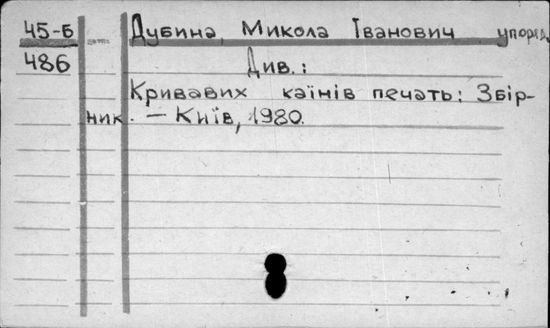 45-Б Дубина, Микола Іванович упоряд.
486 Див.:
Кривавих каїнів печать: Збір-
ник. — Київ, 1980.